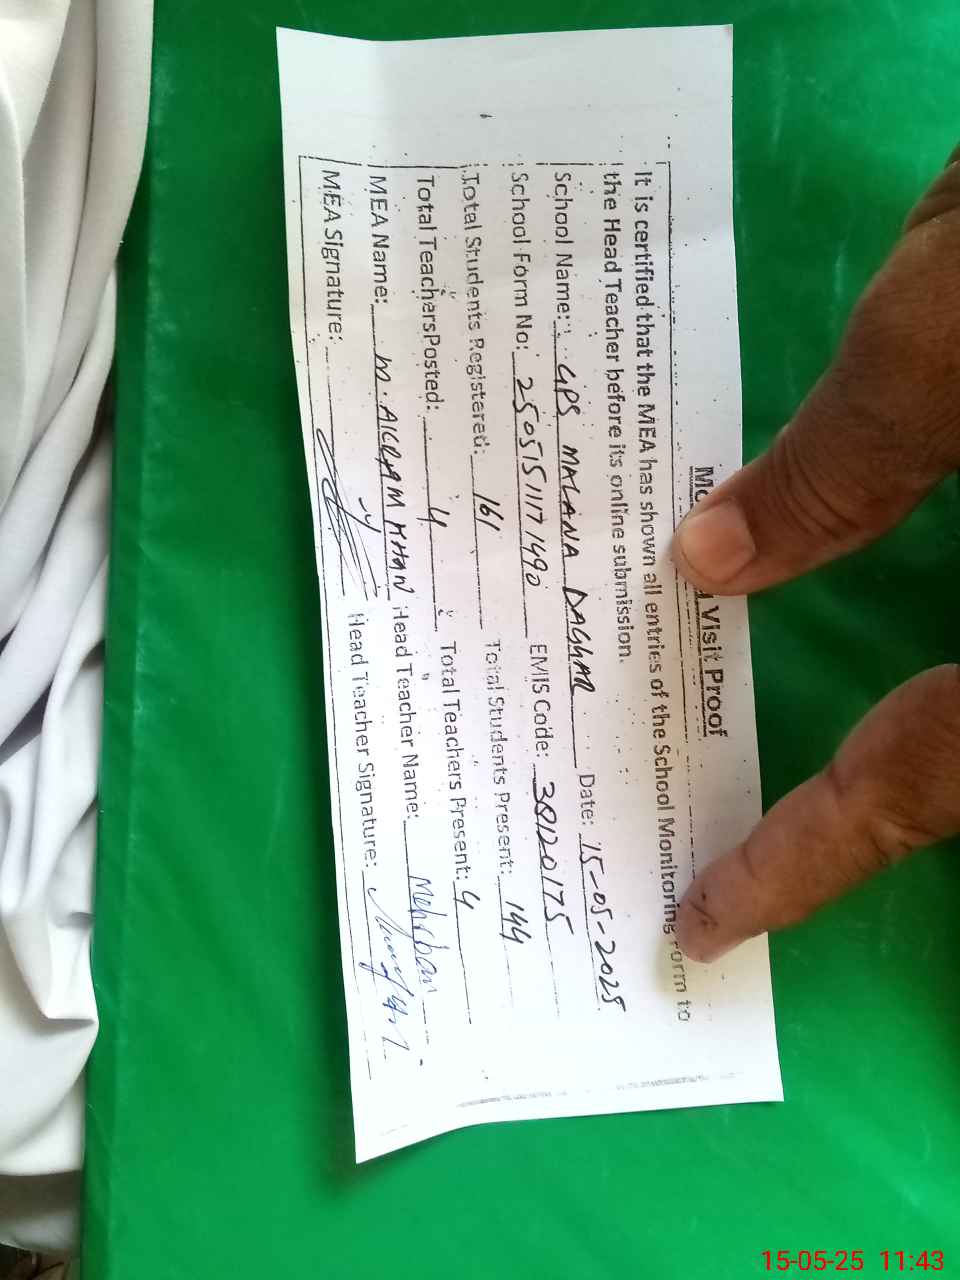 Visit Proof
It is certified that the MEA has shown all entries of the School Monitoring Form to
the Head Teacher before its online submission.
School Name: GPS MALANA DAGGAR Date: 15-05-2025
School Form No: 25051511171490 EMIS Code: 38120175
Total Students Registered: 161 Total Students Present: 144
Total Teachers Posted: 4 Total Teachers Present: 4
MEA Name: M. AKRAM KHAN Head Teacher Name: Mehrban
MEA Signature: Head Teacher Signature:
15-05-25 11:43